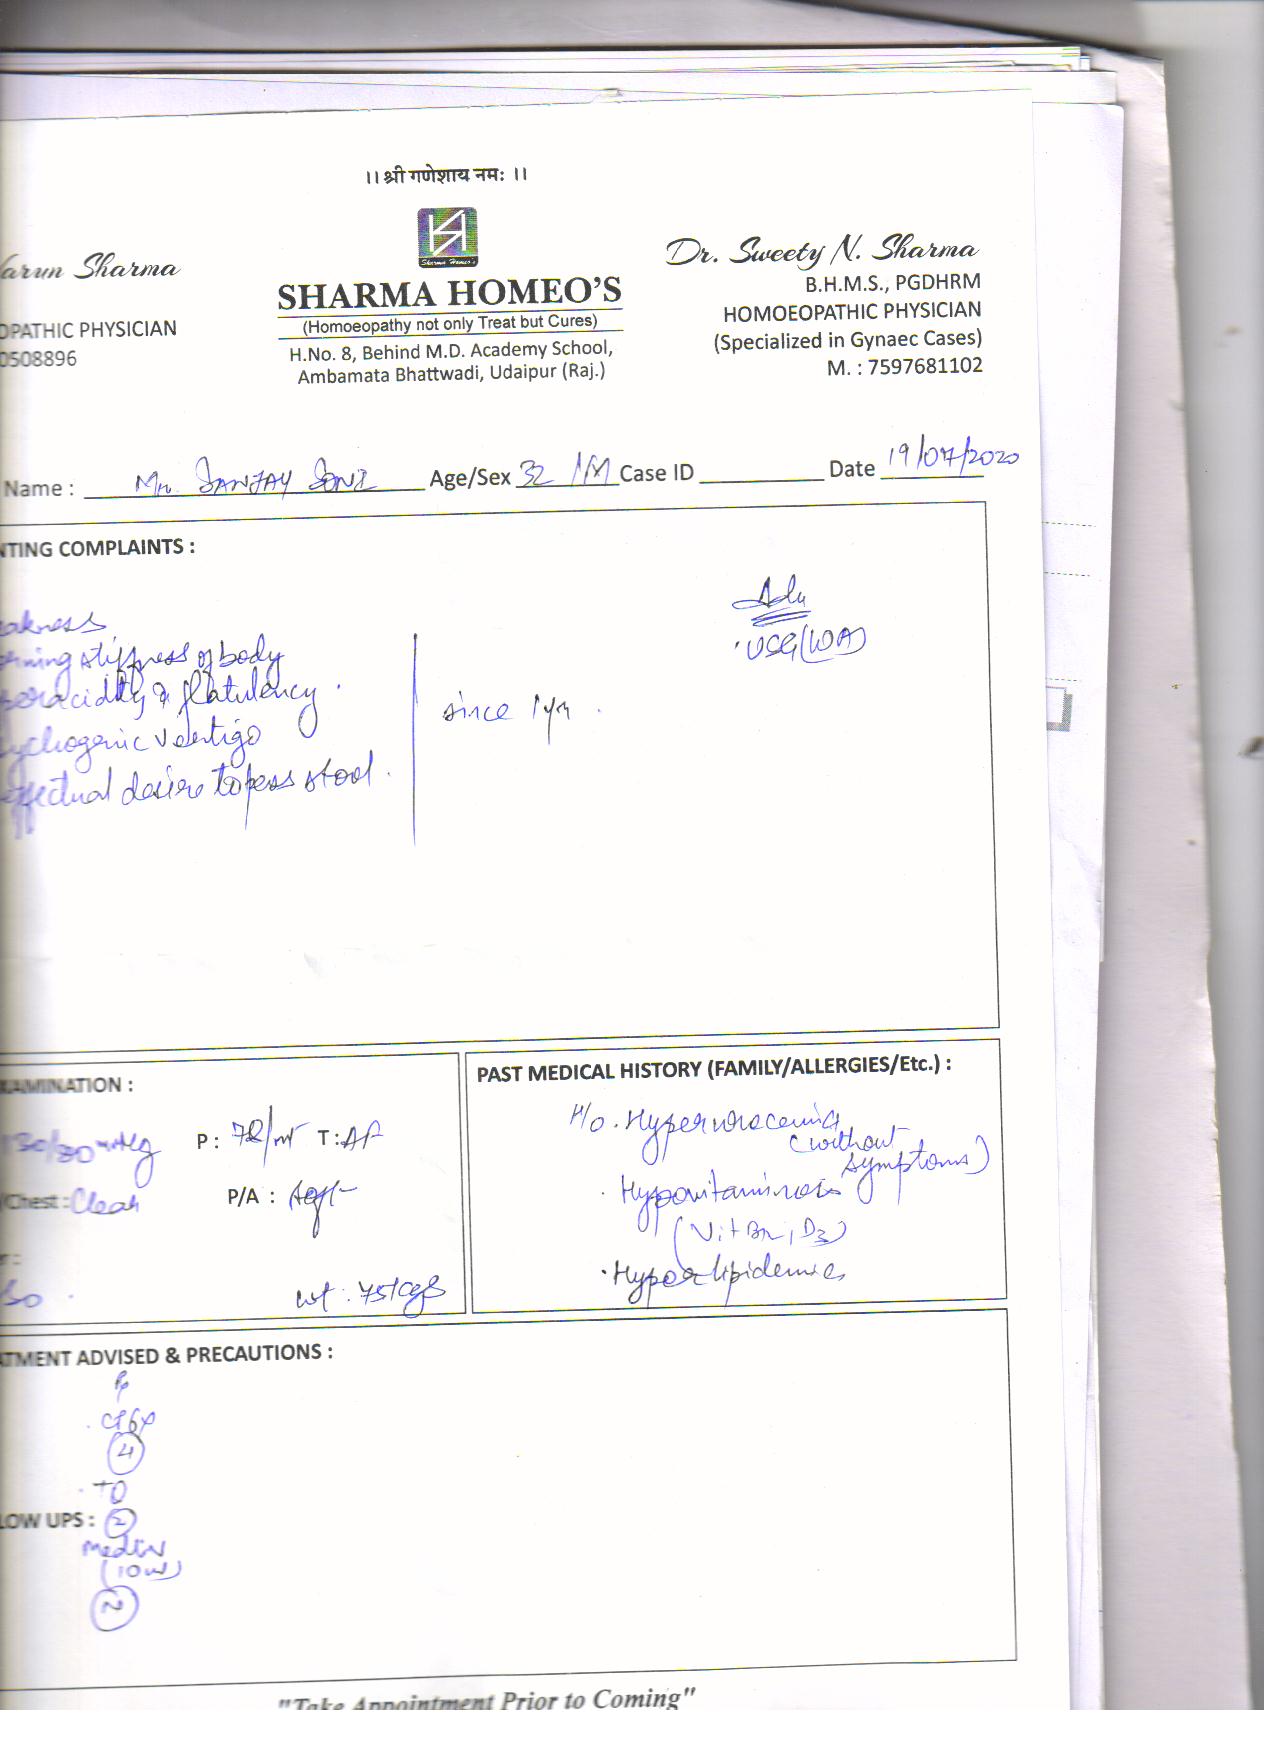 ।। श्री गणेशाय नमः ।।
Sharma Homeo's
arun Sharma
OPATHIC PHYSICIAN
0508896
SHARMA HOMEO'S
(Homoeopathy not only Treat but Cures)
H.No. 8, Behind M.D. Academy School,
Ambamata Bhattwadi, Udaipur (Raj.)
Dr. Sweety N. Sharma
B.H.M.S., PGDHRM
HOMOEOPATHIC PHYSICIAN
(Specialized in Gynaec Cases)
M. : 7597681102
Name : Mr. SANJAY SONI Age/Sex 32 /M Case ID Date 19/07/2020
NTING COMPLAINTS :
eakness
orning stiffness of body
peracidity & flatulency .
ychogenic Vertigo
effectual desire to pass stool .
since 1yr .
Adv
· USG (WA)
XAMINATION :
130/80 mmHg P : 78/mt T : Af
Chest : Clear P/A :
wt : 75 kgs
PAST MEDICAL HISTORY (FAMILY/ALLERGIES/Etc.) :
H/o · Hyperuricemia
(without
symptoms)
· Hypovitaminosis
(Vit B12, D3)
· Hyperlipidemia
ATMENT ADVISED & PRECAUTIONS :
Rx
· CF6x
4
· TD
LOW UPS : 2
(10w)
2
"Take Appointment Prior to Coming"